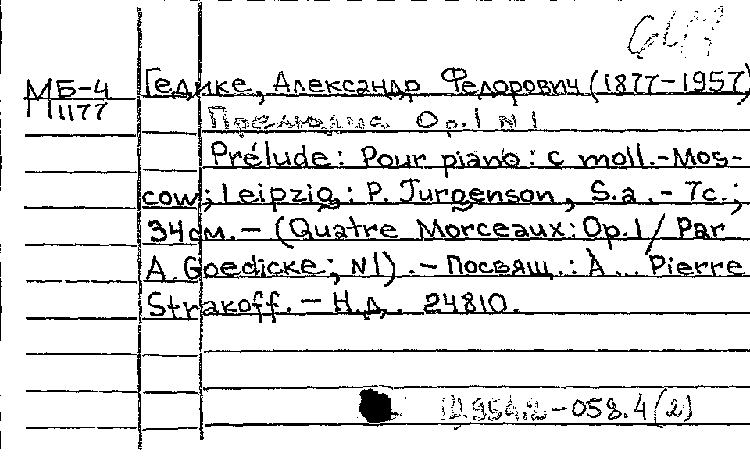 МБ-4 Гедике, Александр Федорович (1877-1957)
11177
Прелюдия Op.1 N1
Prélude: Pour piano: c moll.-Mos-
cow; Leipzig: P. Jurgenson, S.a. - 7c.;
34см. - (Quatre Morceaux: Op.1 / Par
A. Goedicke; N1). - Посвящ.: À ... Pierre
Strakoff. - Н.д. 24810.
-058.4(2)